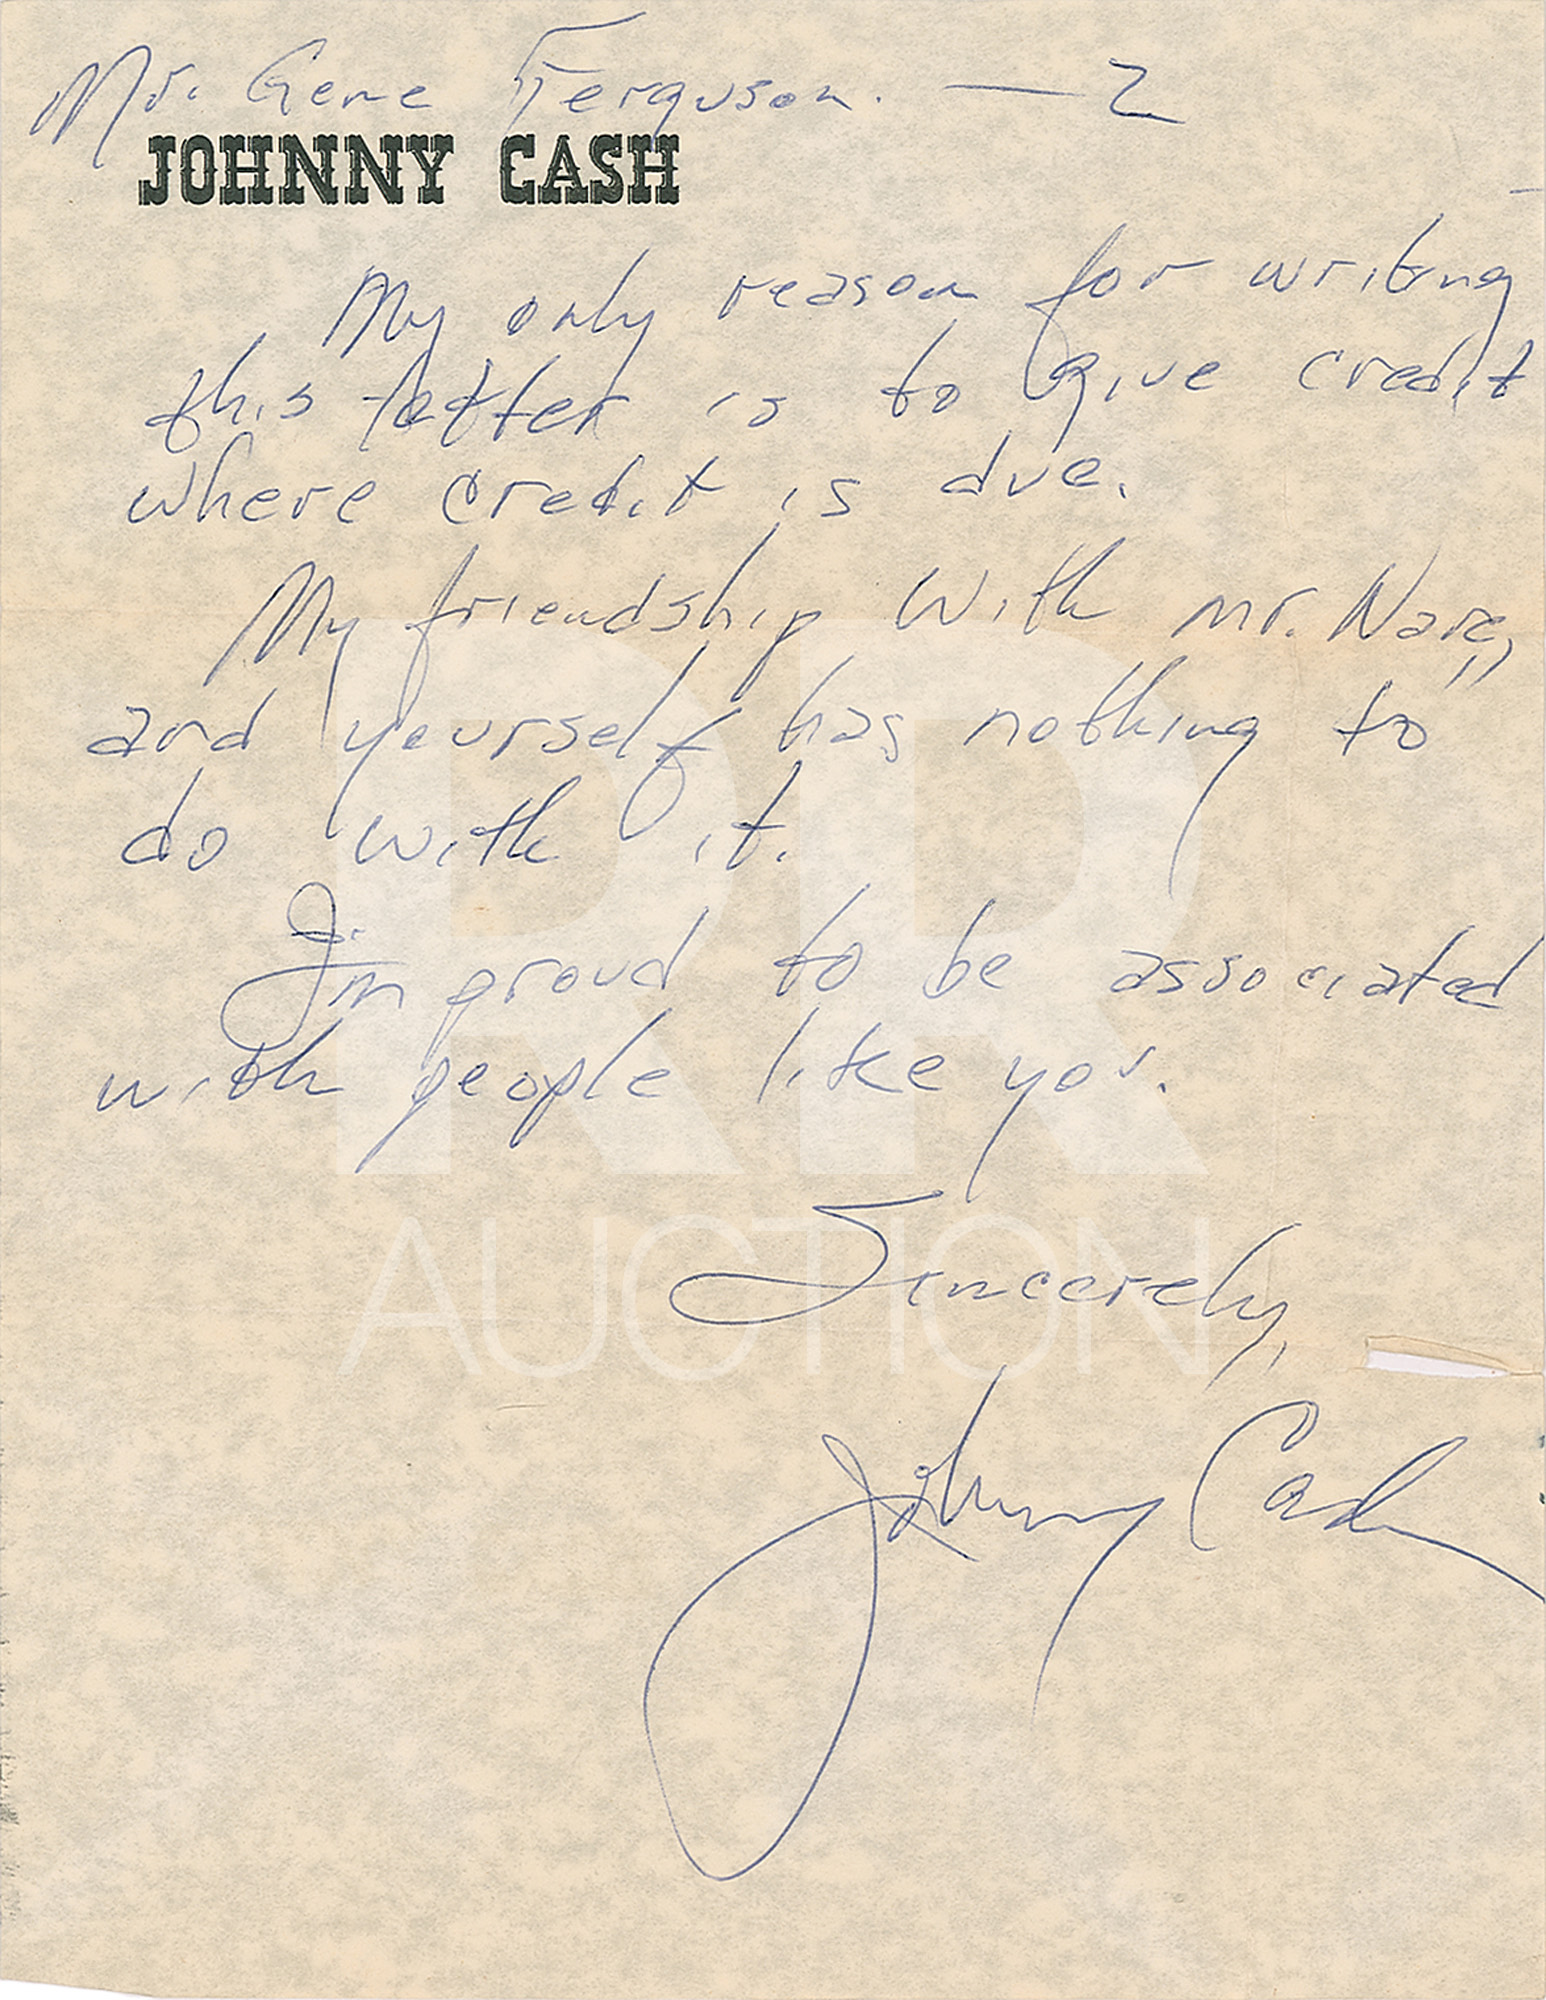 Mr. Gene Ferguson. — 2
JOHNNY CASH
My only reason for writing
this letter is to give credit
where credit is due.
My friendship with Mr. Nare,,
and yourself has nothing to
do with it.
I'm proud to be associated
with people like you.
Sincerely,
Johnny Cash
RR
AUCTION